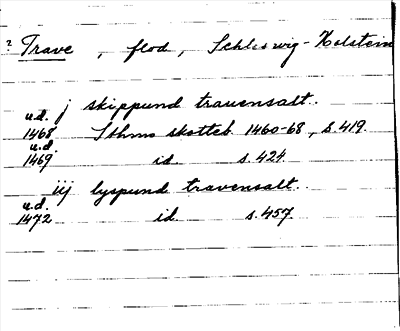 ? Trave, flod, Schleswig-Holstein
u.d. j skippund trauensalt.
1468 Sthms skotteb. 1460-68, s. 419.
u.d.
1469 id s. 424.
iij lyspund travensalt.
u.d.
1472 id s. 457.